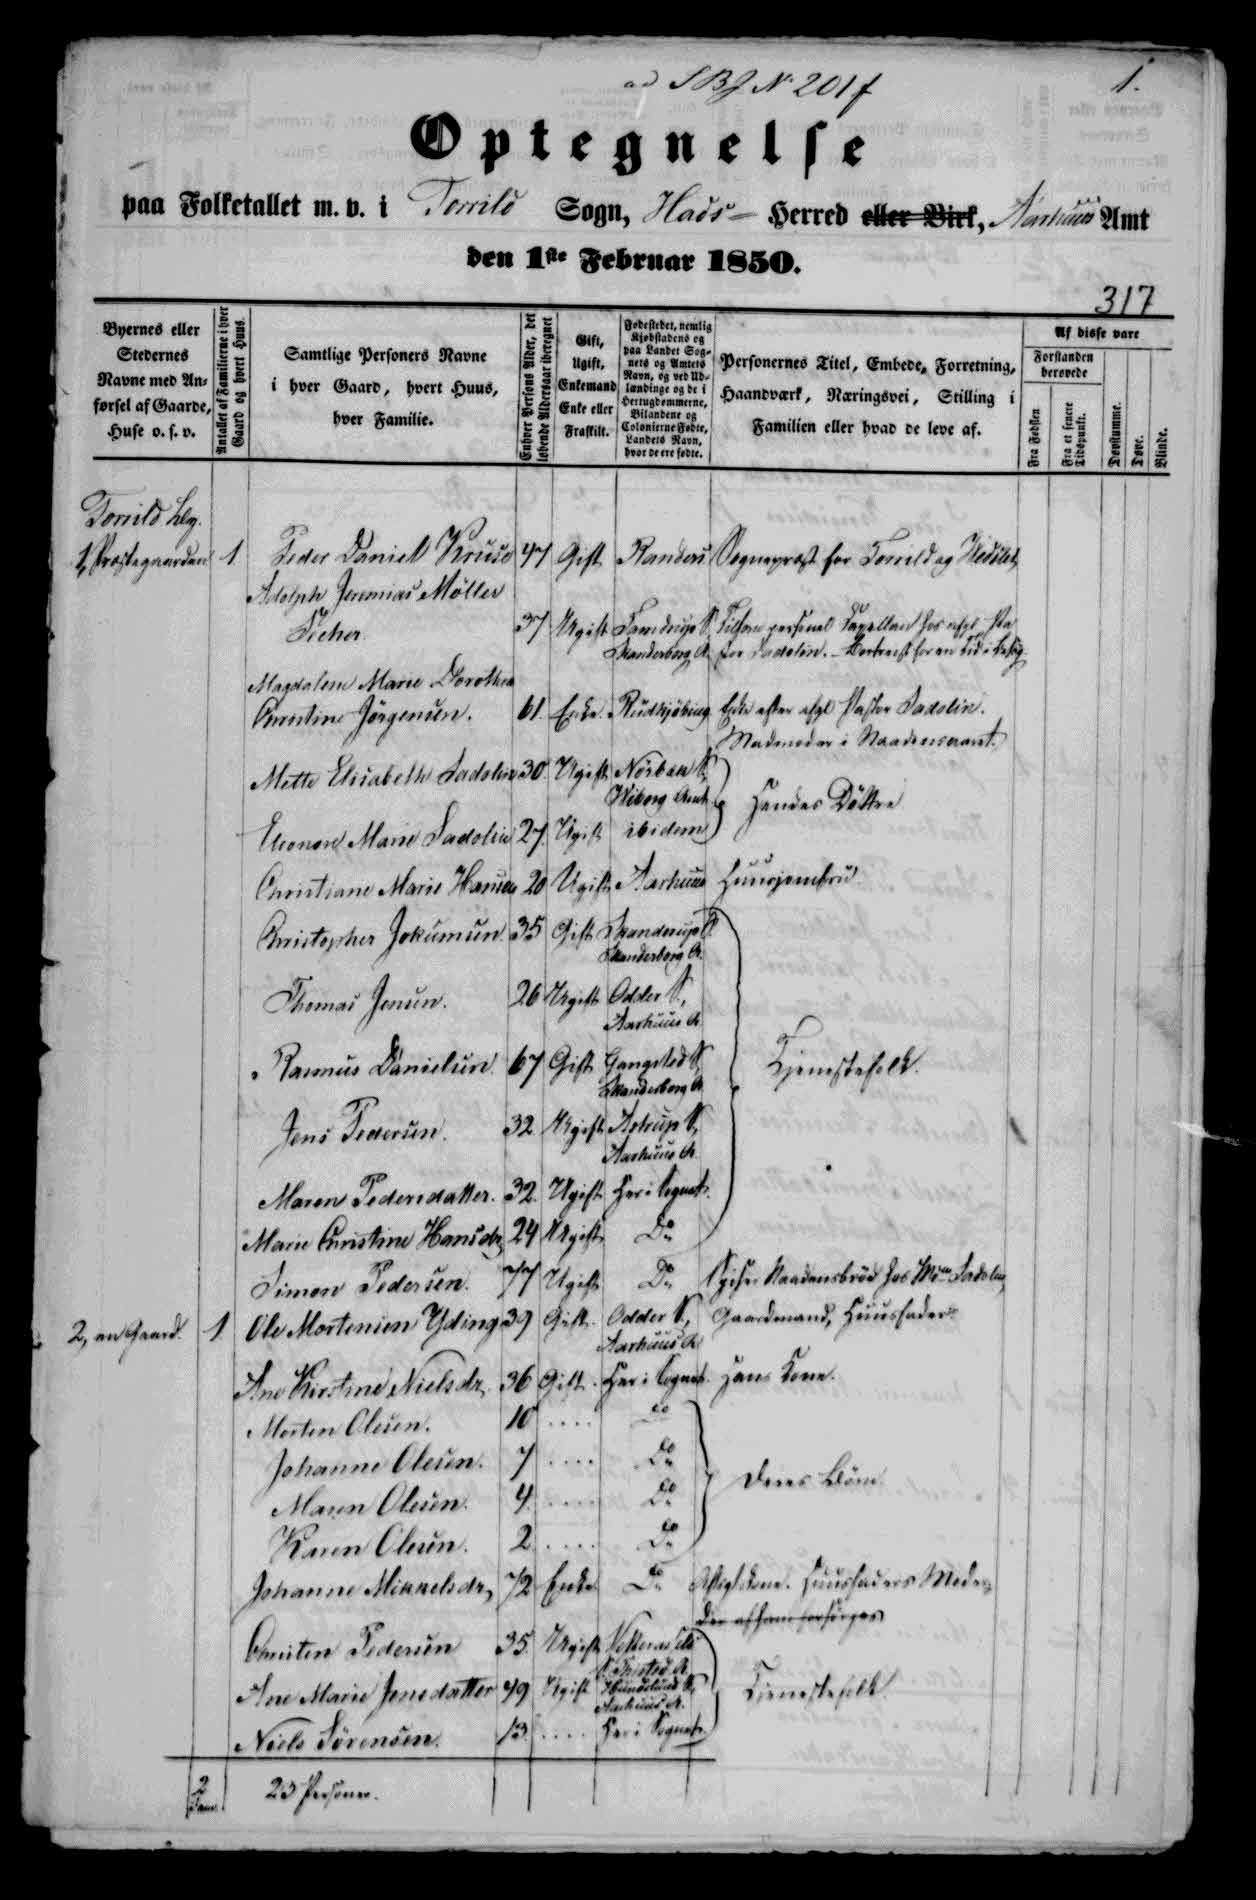 ad SBJ No 201f
1.
Optegnelse
paa Folketallet m. v. i Torrild Sogn, Hads Herred eller Birk, Aarhuus Amt
den 1ste Februar 1850.
317
Byernes eller Stedernes Navne med Anførsel af Gaarde, Huse o. s. v.
Antallet af Familierne i hver Gaard og hvert Huus.
Samtlige Personers Navne i hver Gaard, hvert Huus, hver Familie.
Enhver Persons Alder, det løbende Aldersaar iberegnet
Gift, Ugift, Enkemand Enke eller Fraskilt.
Fødestedet, nemlig Kjøbstadens og paa Landet Sognets og Amtets Navn, og ved Udlændinge og de i Hertugdømmerne, Bilandene og Colonierne Fødte, Landets Navn, hvor de ere fødte.
Personernes Titel, Embede, Forretning, Haandværk, Næringsvei, Stilling i Familien eller hvad de leve af.
Af disse vare
Forstanden berøvede
Fra Fødsen
Fra et senere Tidspunkt.
Døvstumme.
Døve.
Blinde.
Torrild By.
1, Præstegaarden 1 Peder Daniel Kruse 47 Gift Randers Sognepræst for Torrild og
Adolph Jeremias Møller
37 Ugift Tamdrup S. personel Capellan hos afgl. Pa
Skanderborg A. stor Sadolin.
Magdalene Marie Dorothea
Christine Jørgensen. 61. Enke. Rudkjøbing Enke efter afgl. Pastor Sadolin.
Madmoder i Naadensaaret.
Mette Elisabeth Sadolin 30. Ugift
Wiborg Amt Hendes Døttre
Eleonore Marie Sadolin 27. Ugift ibidem
Christiane Marie Hansen 20 Ugift Aarhuus Huusjomfru.
Christopher Jokumsen 35 Gift Skanderup S.
Skanderborg A.
Thomas Jensen. 26 Ugift Odder S.,
Aarhuus A.
Rasmus Danielsen. 67 Gift Gangsted S. Tjenestefolk.
Skanderborg A.
Jens Pedersen. 32 Ugift Astrup S.,
Aarhuus A.
Maren Pedersdatter. 32. Ugift Her i Sognet.
Marie Christine Hansdr. 24 Ugift Do
Simon Pedersen. 77 Ugift Do Naadensbrød hos Sadolin
2, en Gaard. 1. Ole Mortensen Yding 39 Gift. Odder S., Gaardmand, Huusfader.
Aarhuus A.
Ane Kirstine Nielsdr. 36 Gift. Her i Sognet. Hans Kone.
Morten Olesen. 10 .... Do
Johanne Olesen. 7 .... Do Deres Børn.
Maren Olesen. 4. .... Do
Karen Olesen. 2 .... Do
Johanne Mikkelsdr. 72 Enke Do Aftægtskone. Huusfaders Moder,
der af ham forsørges
Christen Pedersen 35. Ugift
S. Thisted A.
Ane Marie Jensdatter 49 Ugift Hundslund S., Tjenestefolk.
Aarhuus A.
Niels Sørensen. 13. .... Her i Sognet.
2 Fam. 23 Personer.